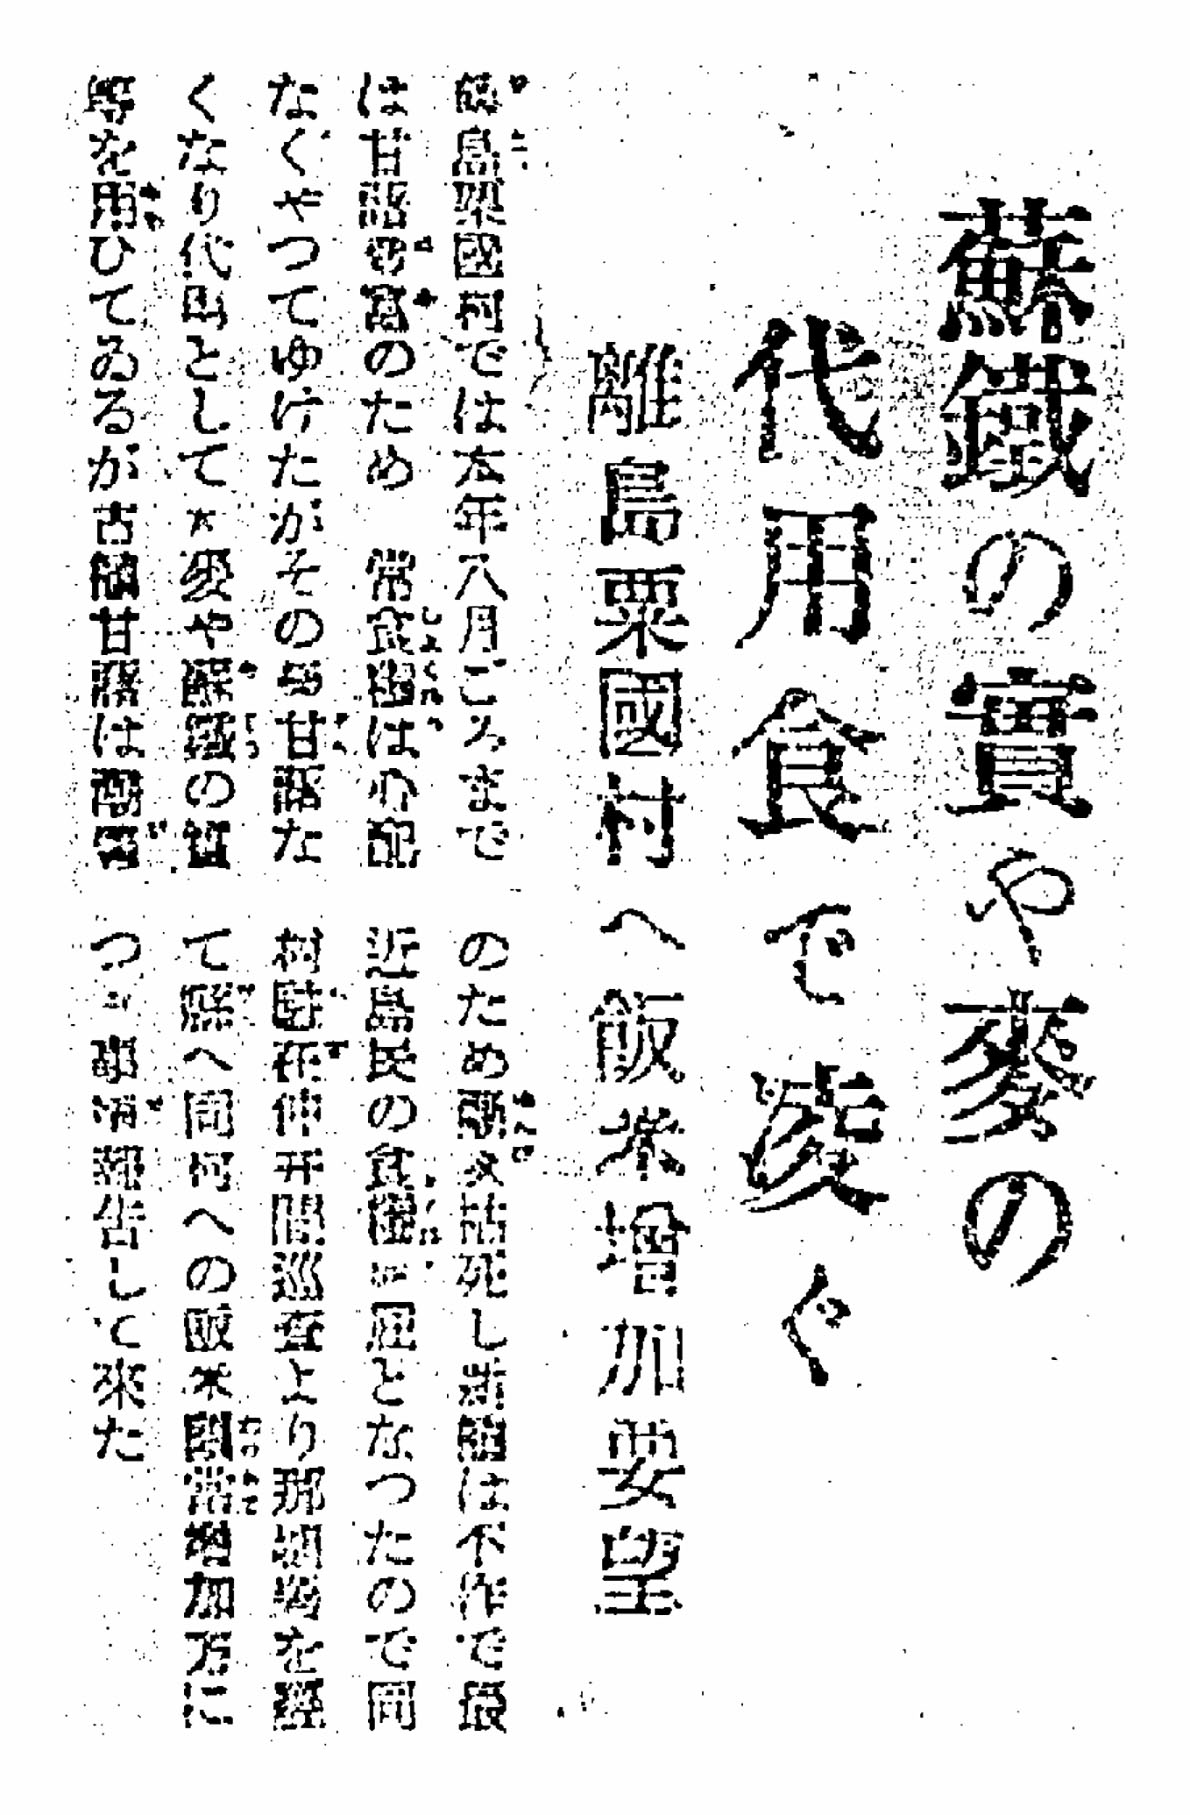 蘇鐵の實や麥の
代用食で凌ぐ
離島粟國村へ飯米增加要望
離島粟國村では本年八月ごろまで
は甘藷豐富のため　常食糧は心配
なくやつてゆけたがその後甘藷な
くなり代用として大麥や蘇鐵の實
等を用ひてゐるが古植甘藷は潮害
のため殆んど枯死し新植は不作で最
近島民の食糧に困となつたので同
村駐在仲井間巡査より那覇署を經
て縣へ同村への飯米割當增加方に
つき事情報告して來た